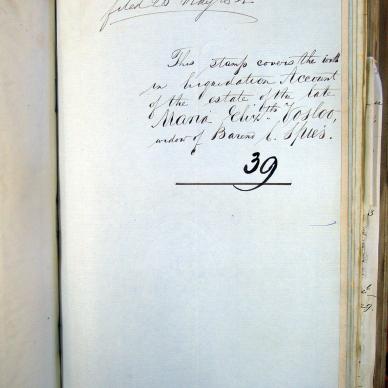 filed 25 May
This stamp covers the
in Liquidation Account
of the estate of the late
Maria Vosloo,
widow of Barend C. Spies.
39